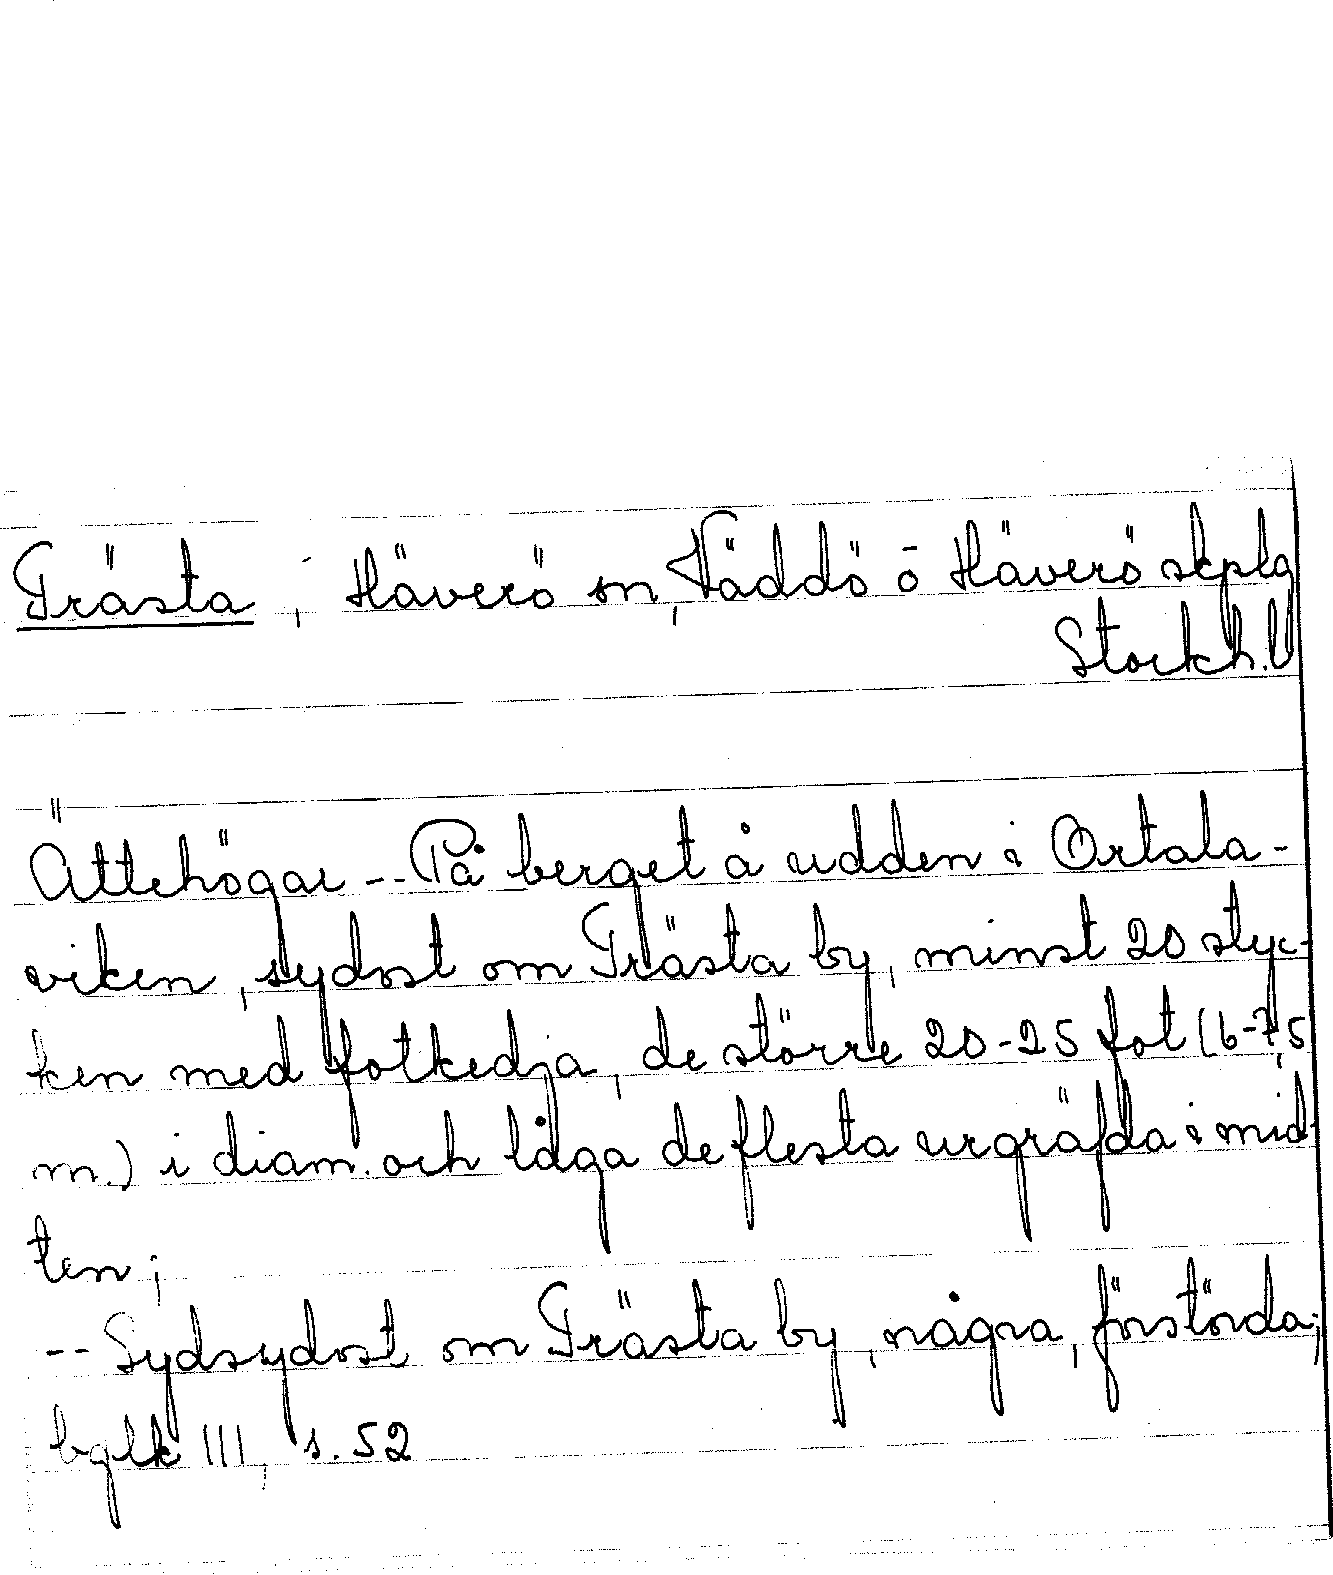 Trästa, Häverö sn, Väddö o Häverö skplg
Stockh. l
Ättehögar -- På berget å udden i Ortala-
viken, sydost om Trästa by, minst 20 styc-
ken med fotkedja, de större 20-25 fot (6-7,5
m.) i diam. och låga de flesta urgräfda i mid-
ten;
-- Sydsydost om Trästa by, några, förstörda;
bglk III, s. 52